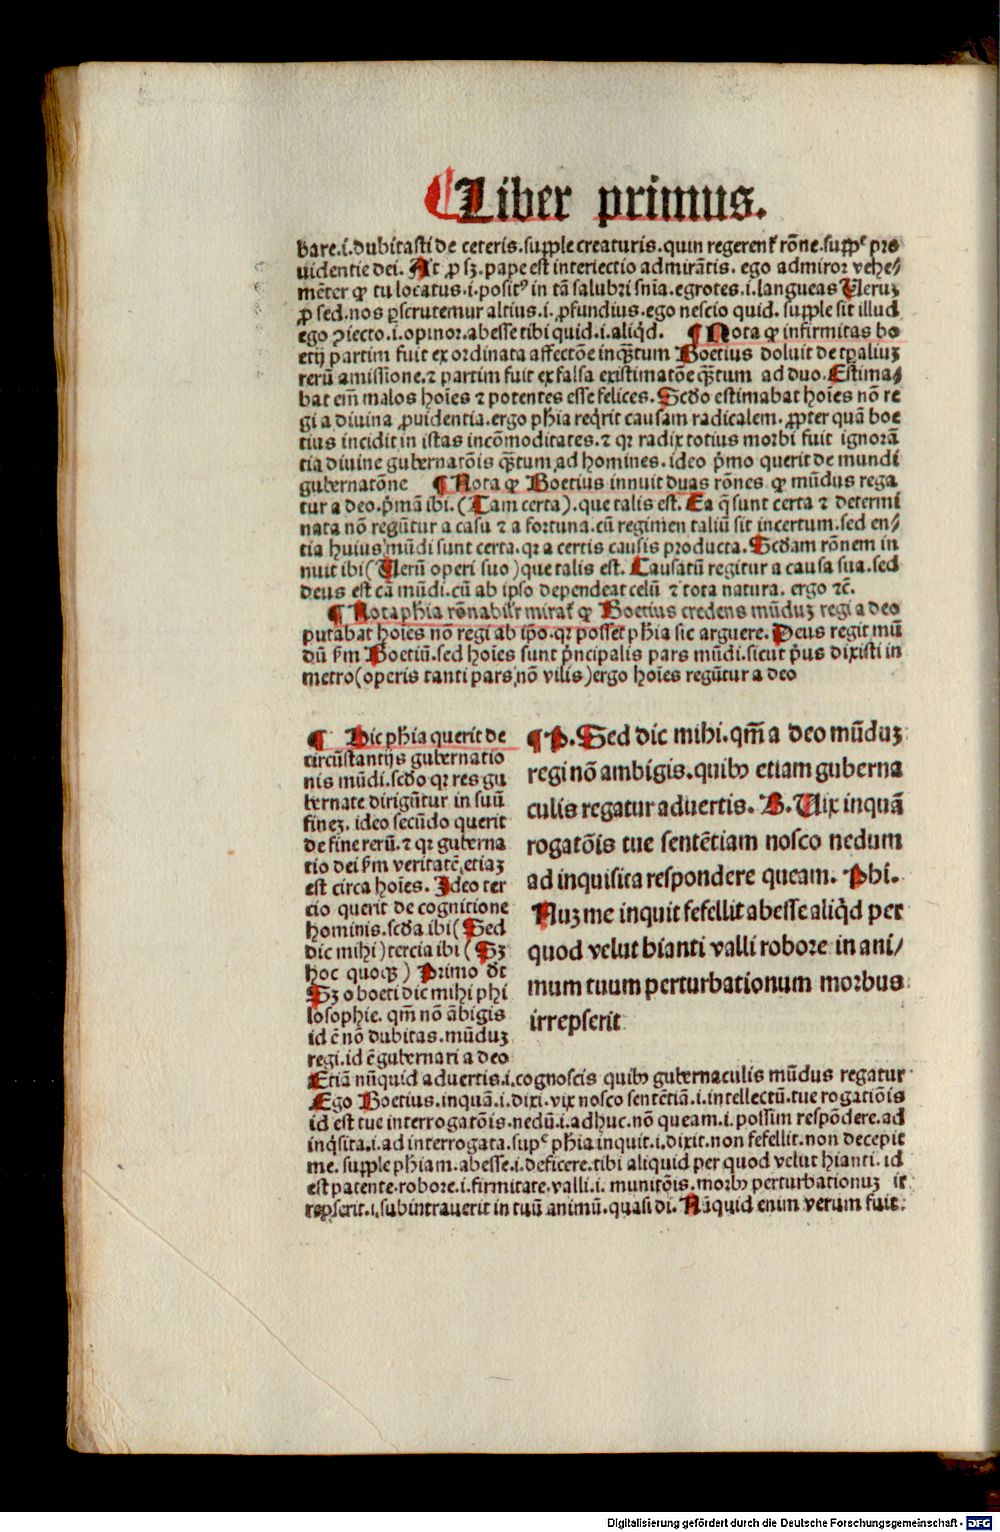 Liber primus.
bare.i.dubitasti de ceteris.supple creaturis.quin regerent᷑ rōne.suppᶜ pro
uidentie dei. At ꝓ sꝫ.pape est interiectio admirātis. ego admiror vehe/
mēter ꝙ tu locatus.i.positꝰ in tā salubri snīa.egrotes.i.langueas Ueruꝫ
ꝓ sed.nos ꝑscrutemur altius.i.ꝓfundius.ego nescio quid. supple sit illud
ego ꝯiecto.i.opinor.abesse tibi quid.i.aliq̇d. ¶ Nota ꝙ infirmitas bo
etij partim fuit ex ordinata affectōe inqꝫtum Boetius doluit de tꝑaliuꝫ
rerū amissione.⁊ partim fuit ex falsa existimatōe qꝫtum ad duo.Estima/
bat em̄ malos hoīes ⁊ potentes esse felices. Scd̄o estimabat hoīes nō re
gi a diuina ꝓuidentia.ergo ph̄ia req̇rit causam radicalem.ꝓpter quā boe
tius incidit in istas incōmoditates.⁊ qꝛ radix totius morbi fuit ignorā
tia diuine gubernatōis qꝫtum ad homines.ideo p̄mo querit de mundi
gubernatōne ¶ Nota ꝙ Boetius innuit duas rōnes ꝙ mūdus rega
tur a deo.p̄mā ibi.(Tam certa).que talis est. Ea q̄ sunt certa ⁊ determi
nata nō regūtur a casu ⁊ a fortuna.cū regimen taliū sit incertum.sed en/
tia huius mūdi sunt certa.qꝛ a certis causis producta.Scd̄am rōnem in
nuit ibi(Uerū operi suo)que talis est. Causatū regitur a causa sua.sed
deus est cā mūdi.cū ab ipso dependeat celū ⁊ tota natura. ergo ⁊c̄.
¶ Nota ph̄ia rōnabilr̄ mirat᷑ ꝙ Boetius credens mūduꝫ regi a deo
putabat hoīes nō regi ab ip̄o.qꝛ posset ph̄ia sic arguere. Deus regit mū
dū ẜm Boetiū.sed hoīes sunt p̄ncipalis pars mūdi.sicut p̄us dixisti in
metro(operis tanti pars nō vilis)ergo hoīes regūtur a deo
¶ Hic ph̄ia querit de
circūstantijs gubernatio
nis mūdi.scd̄o qꝛ res gu
bernate dirigūtur in suū
fineꝫ. ideo secūdo querit
de fine rerū.⁊ qꝛ guberna
tio dei ẜm veritatē etiaꝫ
est circa hoīes. Ideo ter
tio querit de cognitione
hominis.scd̄a ibi(Sed
dic mihi)tercia ibi (Sꝫ
hoc quoqꝫ) Primo dt̄
Sꝫ o boeti dic mihi phi
losophie. qm̄ nō ābigis
id ē nō dubitas.mūduꝫ
regi.id ē gubernari a deo
¶ P. Sed dic mihi.qm̄ a deo mūduꝫ
regi nō ambigis.quibꝰ etiam guberna
culis regatur aduertis. B. Uix inquā
rogatōis tue sentētiam nosco nedum
ad inquisita respondere queam. Phi.
Nuꝫ me inquit fefellit abesse aliq̇d per
quod velut hianti valli robore in ani/
mum tuum perturbationum morbus
irrepserit
Etiā nūquid aduertis.i.cognoscis quibꝰ gubernaculis mūdus regatur
Ego Boetius.inquā.i.dixi.vix nosco sentētiā.i.intellectū.tue rogatiōis
id est tue interrogatōis.nedū.i.adhuc.nō queam.i.possim respōdere.ad
inq̇sita.i.ad interrogata.supᶜ ph̄ia inquit.i.dixit.non fefellit.non decepit
me. supple phiam.abesse.i.deficere.tibi aliquid per quod velut hianti. id
est patente.robore.i.firmitate.valli.i. munitōis.morbꝰ perturbationuꝫ ir
repserit.i.subintrauerit in tuū animū.quasi di. Nūquid enim verum fuit.
Digitalisierung gefördert durch die Deutsche Forschungsgemeinschaft - DFG